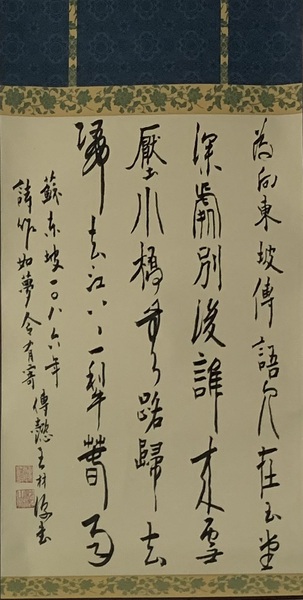 為向東坡傳語人在玉堂
深處別後誰来雪
壓小橋無路歸去
歸去江上一犁春雨
蘇东坡一〇八六年
詩作如夢令有寄 王林書